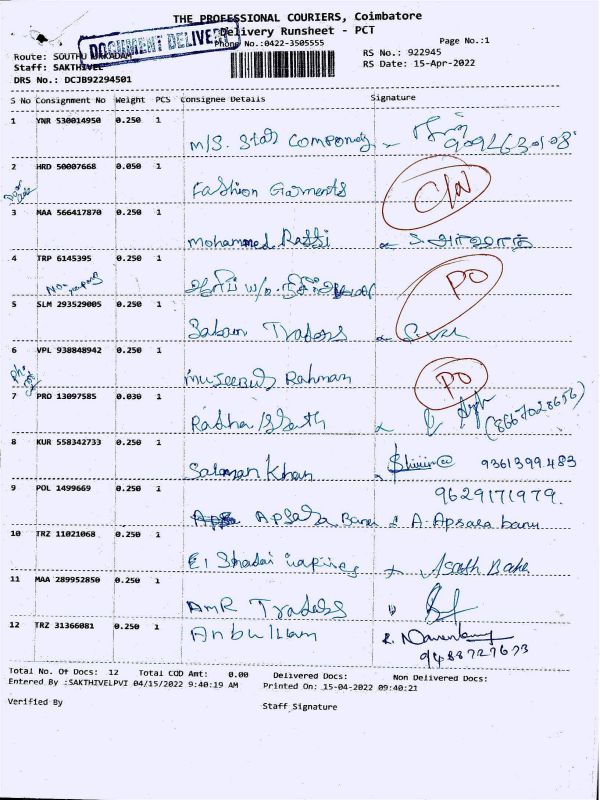 THE PROFESSIONAL COURIERS, Coimbatore
Delivery Runsheet - PCT
DOCUMENT DELIVERY
Phone No.:0422-3505555
Page No.:1
Route: SOUTH
RS No.: 922945
Staff: SAKTHIVEL
RS Date: 15-Apr-2022
DRS No.: DCJB92294501
S No Consignment No Weight PCS Consignee Details Signature
1 YNR 530014950 0.250 1
M/S. Star Company
2 HRD 50007668 0.050 1
Door Lock
Fashion Garments C/N
3 MAA 566417870 0.250 1
mohammed Rafi
4 TRP 6145395 0.250 1
W/o. PO
5 SLM 293529005 0.250 1
Traders
6 VPL 938848942 0.250 1
museebur Rahman PO
7 PRO 13097585 0.030 1
Radha (8667028656)
8 KUR 558342733 0.250 1
Salman Khan 9361399483
9 POL 1499669 0.250 1 9629171979.
Apsara Banu A. Apsara banu
10 TRZ 11021068 0.250 1
El Shadai
11 MAA 289952850 0.250 1
AMR Traders
12 TRZ 31366081 0.250 1
Anbu Illam
9488727673
Total No. Of Docs: 12 Total COD Amt: 0.00 Delivered Docs: Non Delivered Docs:
Entered By :SAKTHIVELPVI 04/15/2022 9:40:19 AM Printed On: 15-04-2022 09:40:21
Verified By Staff Signature